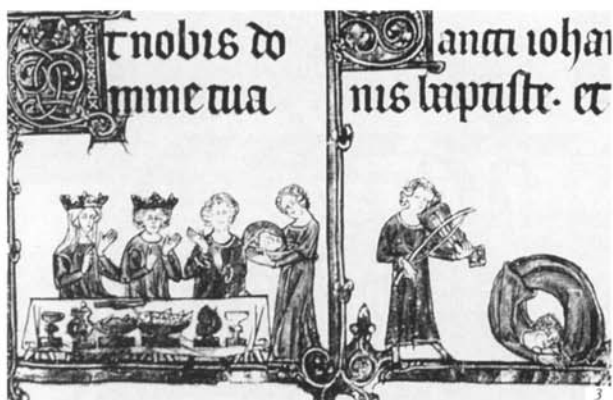 Et nobis do
mine tua
Sancti iohan
nis baptiste. et
3